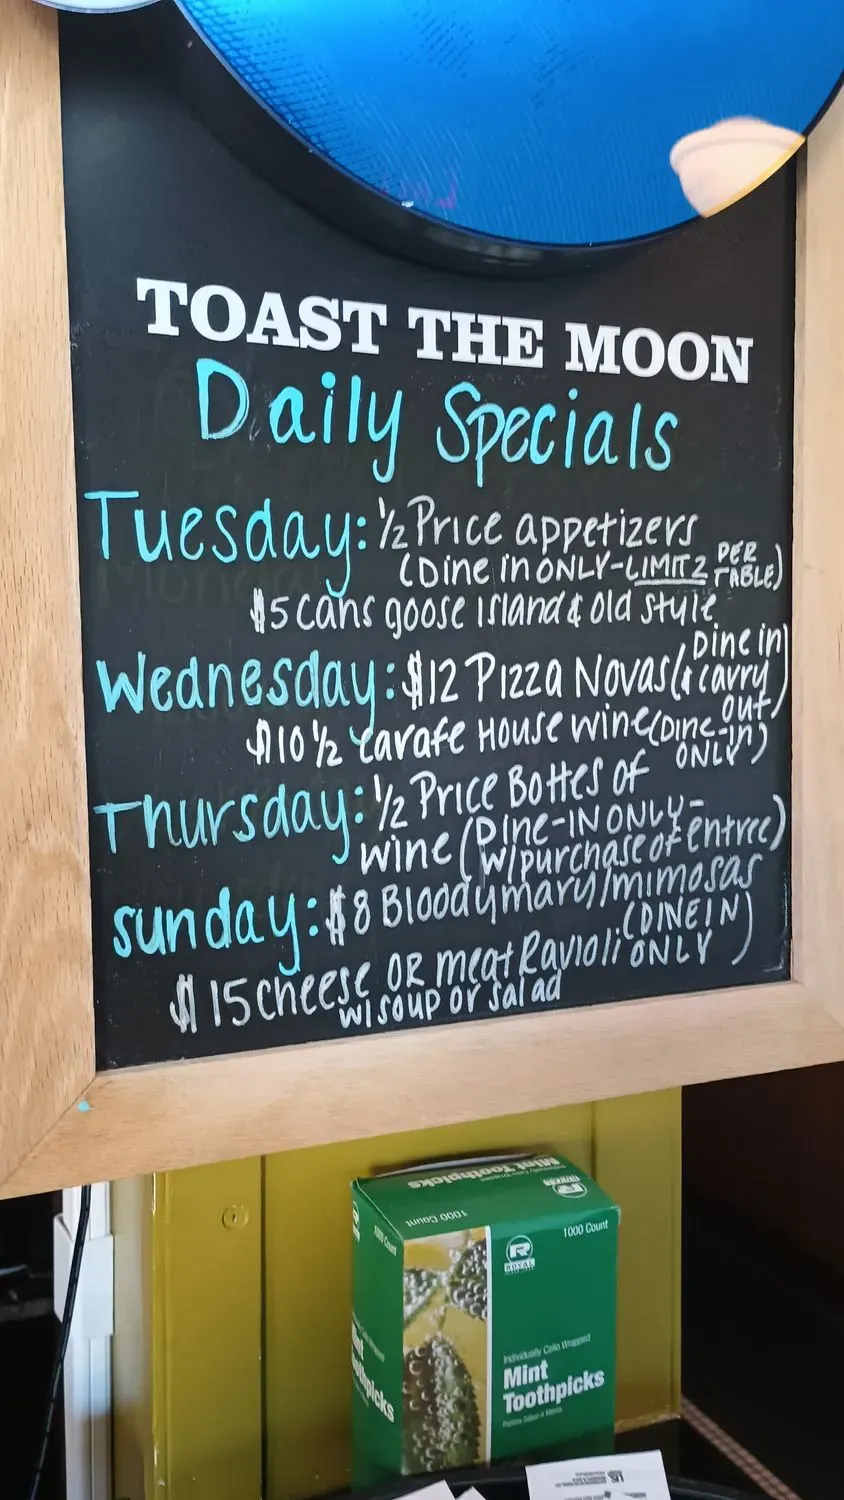 TOAST THE MOON
Daily Specials
Tuesday: 1/2 Price appetizers
(Dine in ONLY-LIMIT 2 PER TABLE)
$5 cans goose Island & Old Style
Wednesday: $12 Pizza Novas (Dine in & carry out)
$10 1/2 carafe House wine (Dine-in ONLY)
Thursday: 1/2 Price Bottles of
wine (Dine-IN ONLY-
w/purchase of entree)
Sunday: $8 Bloodymary/mimosas
(DINE IN ONLY)
$15 cheese OR meat Ravioli
w/soup or salad
Mint Toothpicks
Individually Cello Wrapped
1000 Count
ROYAL
1000 Count
1000 Count
R
ROYAL
Individually Cello Wrapped
Mint
Toothpicks
Mint
Toothpicks